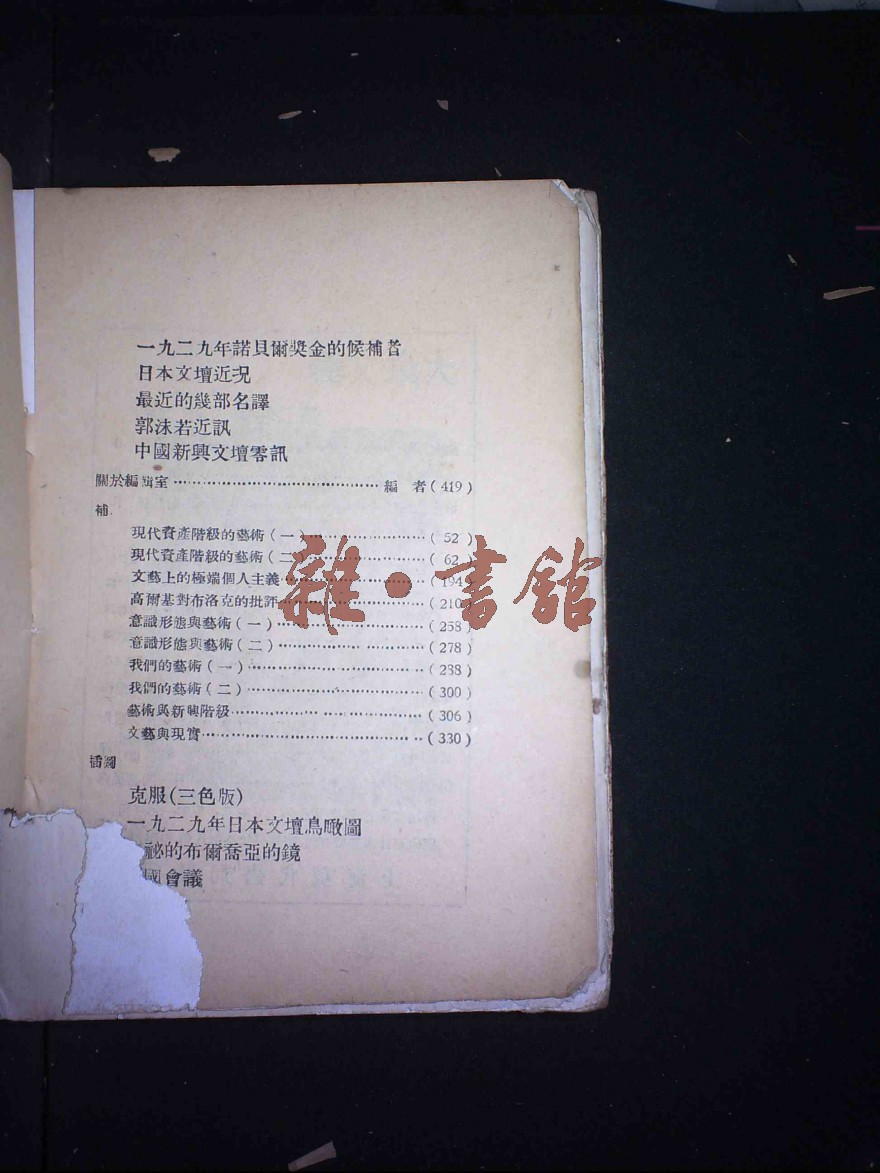 一九二九年諾貝爾獎金的候補者
日本文壇近況
最近的幾部名譯
郭沫若近訊
中國新興文壇零訊
關於編輯室……………………………………編 者(419)
補
現代資產階級的藝術(一)……………………(52)
現代資產階級的藝術(二)……………………(62)
文藝上的極端個人主義………………………(194)
高爾基對布洛克的批評………………………(210)
意識形態與藝術(一)…………………………(258)
意識形態與藝術(二)…………………………(278)
我們的藝術(一)………………………………(288)
我們的藝術(二)………………………………(300)
藝術與新興階級………………………………(306)
文藝與現實……………………………………(330)
插圖
克服(三色版)
一九二九年日本文壇鳥瞰圖
祕的布爾喬亞的鏡
國會議
雜·書館